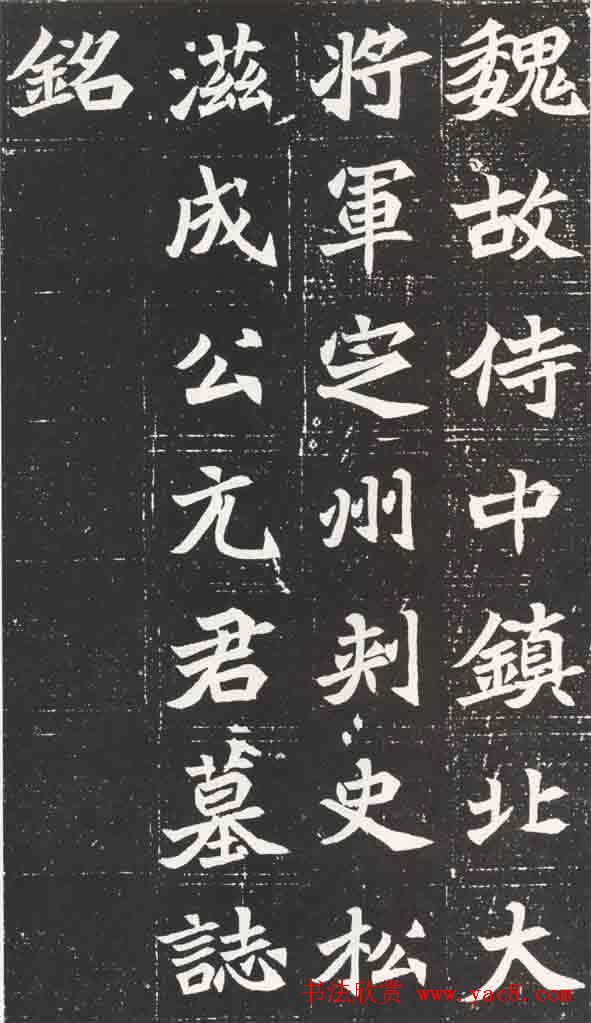 魏故侍中鎮北大
将軍定州刺史松
滋成公元君墓誌
銘
书法欣赏 www.yac8.com